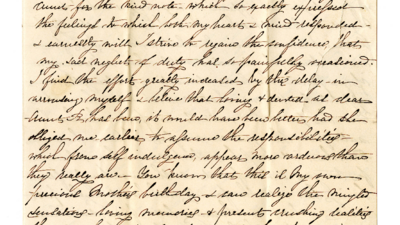 Aunt for the kind note which so exactly expressed
the feelings to which both my heart & mind responded -
& earnestly will I strive to regain the confidence that
my sad neglect of duty had so painfully occasioned.
I find the effort greatly increased by this delay in
arousing myself & believe that loving & devoted as dear
Aunt has been, it would have been better had she
obliged me earlier to assume the responsibilities
which from self indulgence, appear more arduous than
they really are - You know that this is my own
precious Mother's birthday & can realize the mingled
sensations - loving memories - & present crushing realities